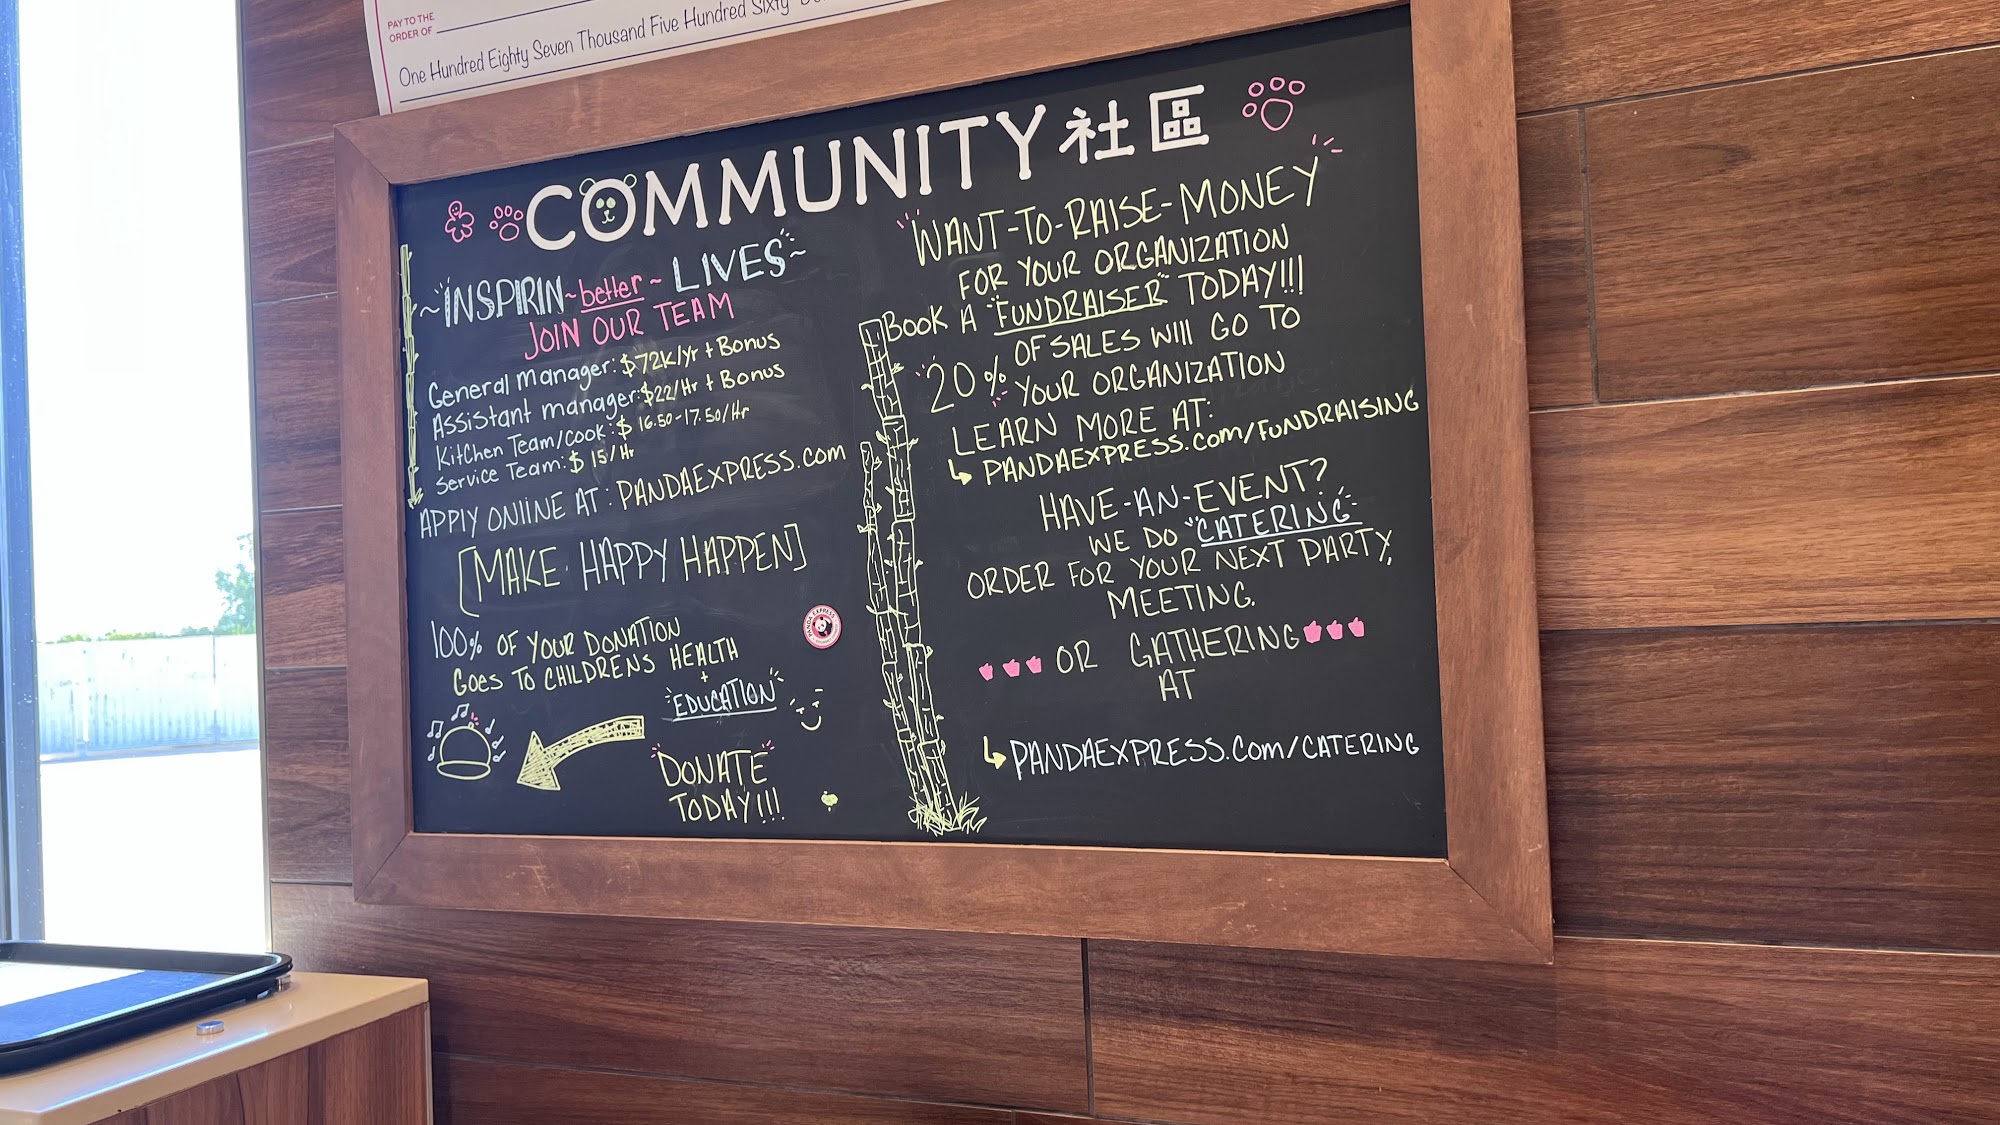 PAY TO THE
ORDER OF
One Hundred Eighty Seven Thousand Five Hundred Sixty
COMMUNITY 社區
~INSPIRIN~better~LIVES~
JOIN OUR TEAM
General Manager: $72K/yr + Bonus
Assistant manager: $22/Hr + Bonus
Kitchen Team/Cook: $16.50-17.50/Hr
Service Team: $15/Hr
APPLY ONLINE AT: PANDAEXPRESS.COM
[MAKE HAPPY HAPPEN]
100% OF YOUR DONATION
GOES TO CHILDRENS HEALTH
+
"EDUCATION"
"DONATE"
TODAY!!!
PANDA EXPRESS
"WANT-TO-RAISE-MONEY"
FOR YOUR ORGANIZATION
BOOK A "FUNDRAISER" TODAY!!!
20% OF SALES WILL GO TO
YOUR ORGANIZATION
LEARN MORE AT:
↳ PANDAEXPRESS.COM/FUNDRAISING
HAVE-AN-EVENT?
WE DO "CATERING"
ORDER FOR YOUR NEXT PARTY,
MEETING.
OR GATHERING
AT
↳ PANDAEXPRESS.COM/CATERING